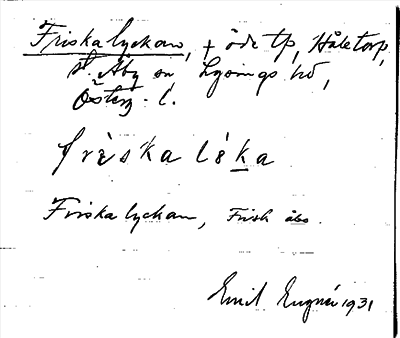 Friskalyckan, + öde tp, Håletorp,
St. Åby sn Lysings hd,
Österg. l.
frèska lèka
Friskalyckan, Frisk åbs.
Emil Engnér 1931